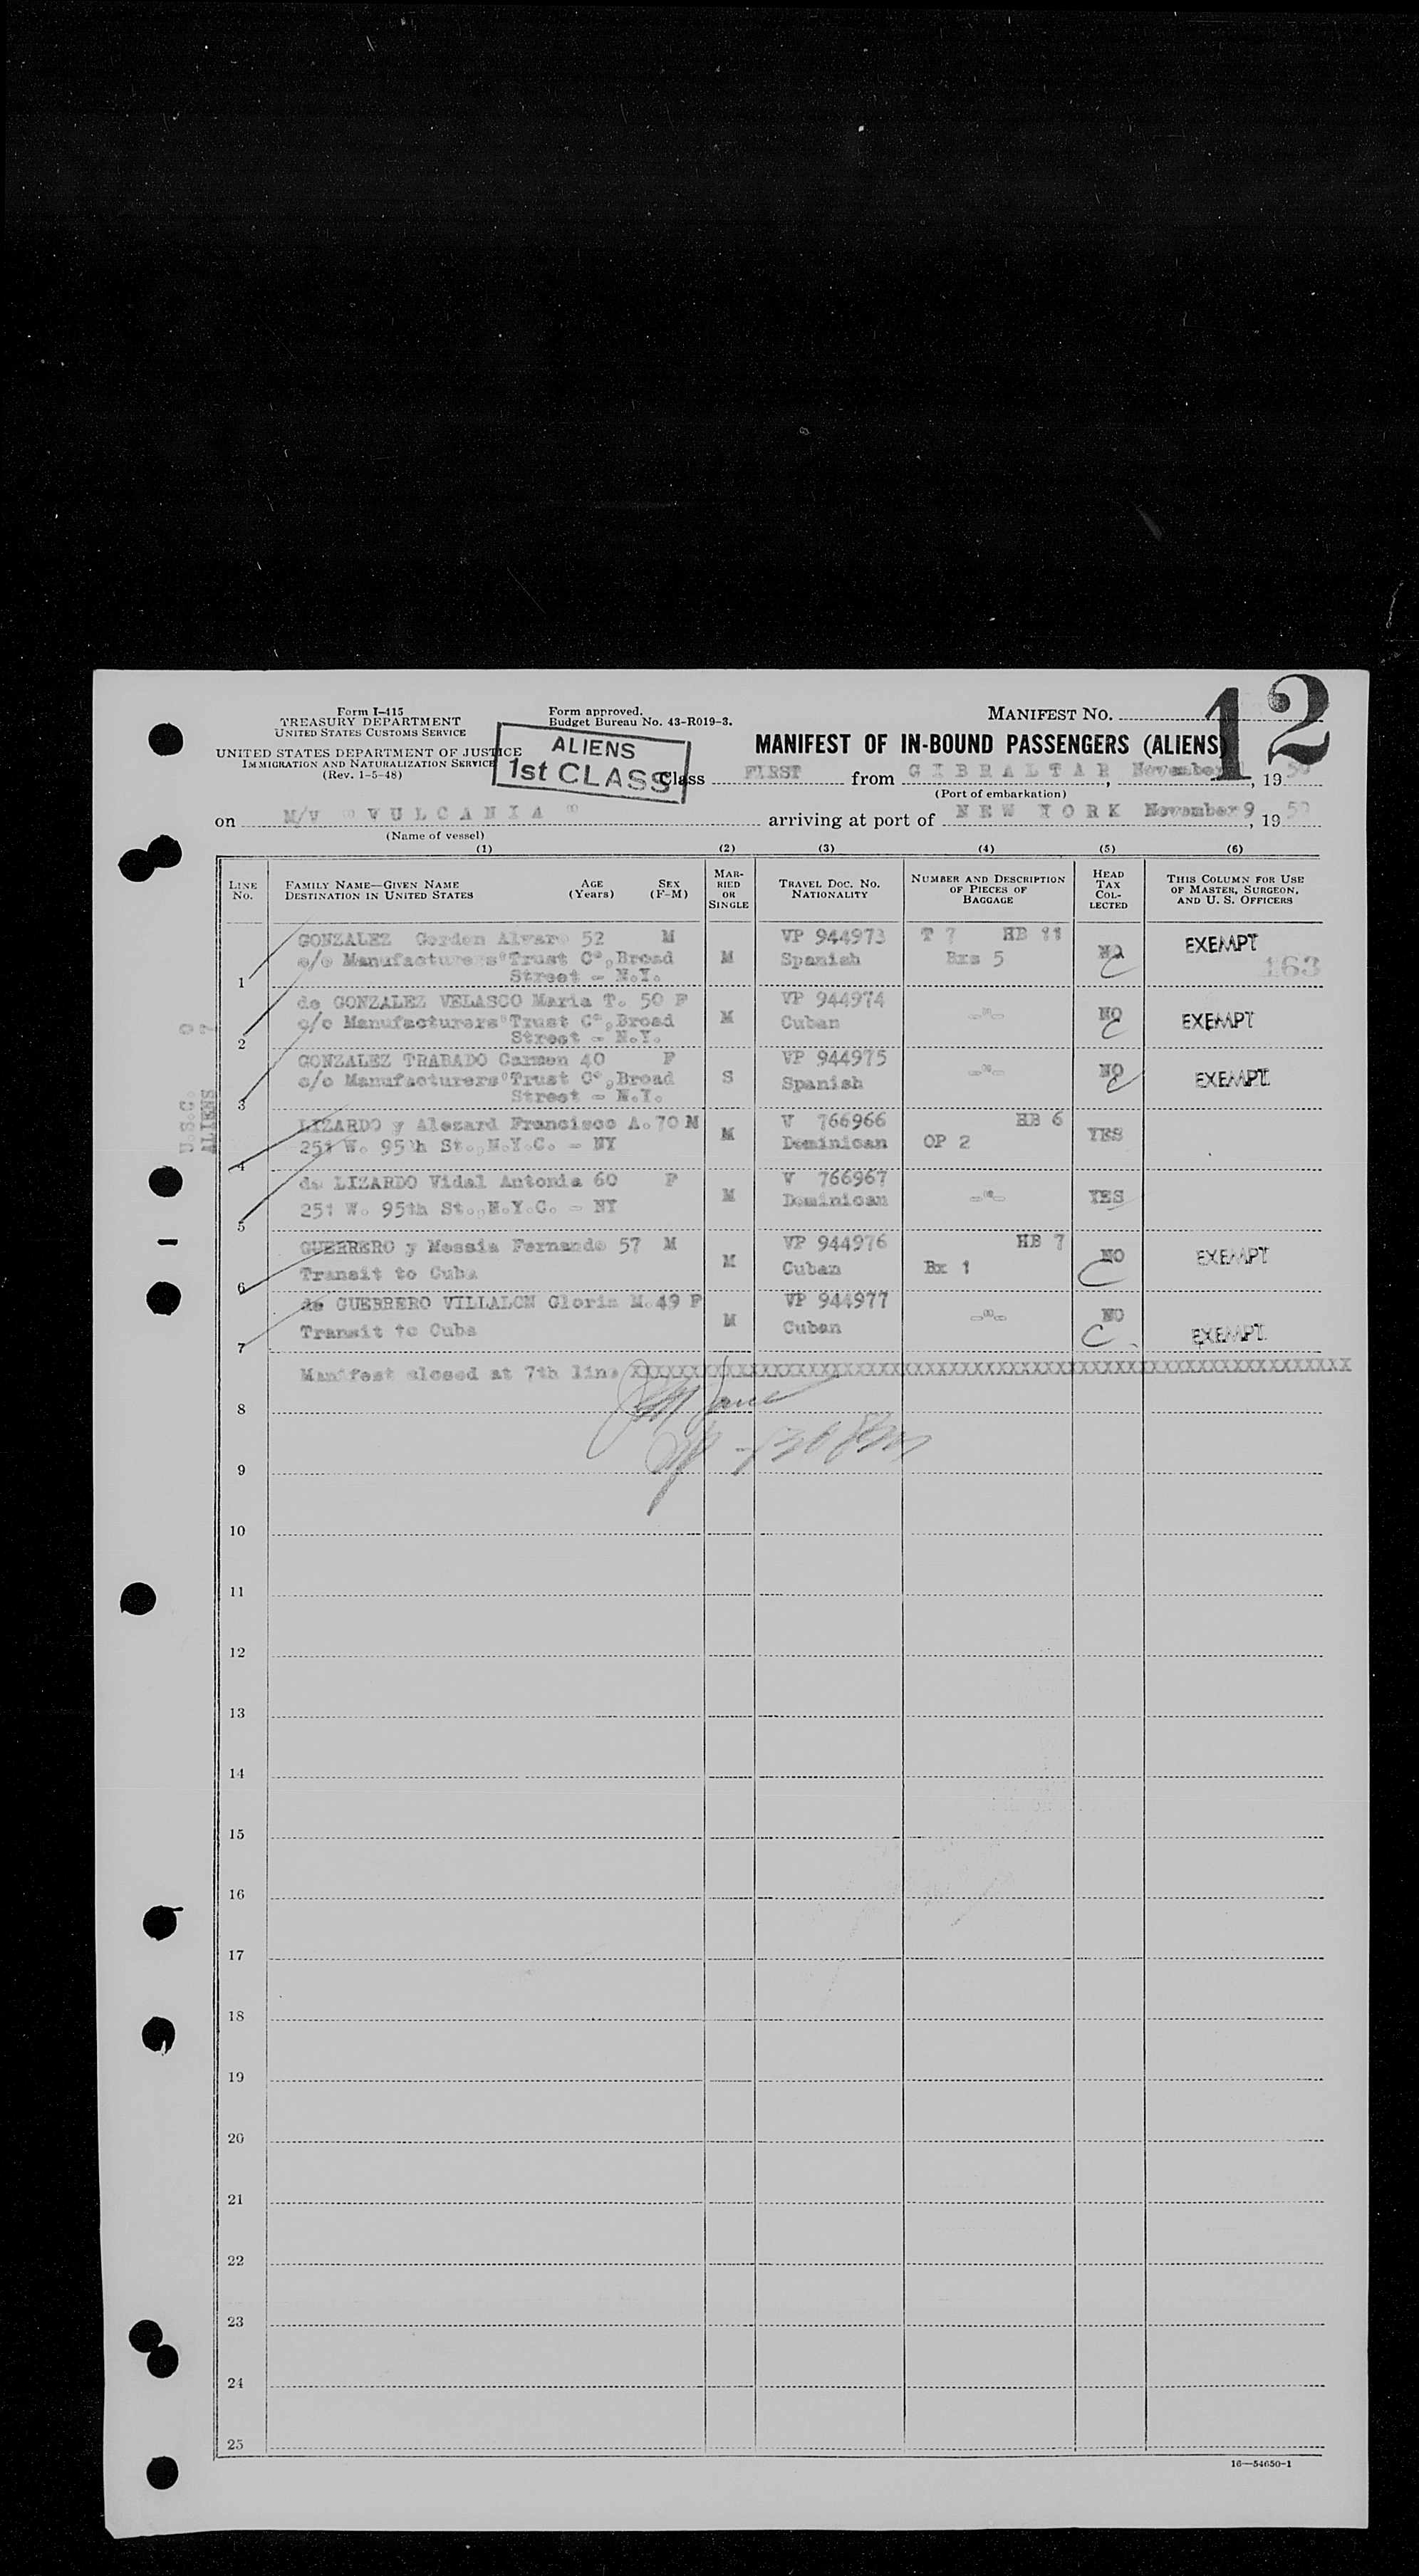 Form I-415
TREASURY DEPARTMENT
UNITED STATES CUSTOMS SERVICE
UNITED STATES DEPARTMENT OF JUSTICE
IMMIGRATION AND NATURALIZATION SERVICE
(Rev. 1-5-48)
Form approved.
Budget Bureau No. 43-R019-3.
ALIENS
1st CLASS
MANIFEST NO. 12
MANIFEST OF IN-BOUND PASSENGERS (ALIENS)
Class FIRST from GIBRALTAR, November, 1950
(Port of embarkation)
on M/V "VULCANIA" arriving at port of NEW YORK November 9, 1950
(Name of vessel)
(1) (2) (3) (4) (5) (6)
LINE NO.
FAMILY NAME—GIVEN NAME DESTINATION IN UNITED STATES
AGE (Years)
SEX (F-M)
MARRIED OR SINGLE
TRAVEL DOC. NO. NATIONALITY
NUMBER AND DESCRIPTION OF PIECES OF BAGGAGE
HEAD TAX COLLECTED
THIS COLUMN FOR USE OF MASTER, SURGEON, AND U. S. OFFICERS
GONZALEZ Gordon Alvaro 52 M VP 944973 T 7 HB 11 EXEMPT
c/o Manufacturers'Trust C°,Broad M Spanish Bxs 5 NO 163
1 Street - N.Y.
de GONZALEZ VELASCO Maria T. 50 F VP 944974
c/o Manufacturers'Trust C°,Broad M Cuban -"- NO EXEMPT
2 Street - N.Y.
GONZALEZ TRABADO Carmen 40 F VP 944975
c/o Manufacturers'Trust C°,Broad S Spanish -"- NO EXEMPT
3 Street - N.Y.
LIZARDO y Alezard Francisco A. 70 M V 766966 HB 6
251 W. 95th St.,N.Y.C. - NY M Dominican OP 2 YES
4
de LIZARDO Vidal Antonia 60 F V 766967
251 W. 95th St.,N.Y.C. - NY M Dominican -"- YES
5
GUERRERO y Messia Fernando 57 M VP 944976 HB 7
Transit to Cuba M Cuban Bx 1 NO EXEMPT
6
de GUERRERO VILLALON Gloria M. 49 F VP 944977
Transit to Cuba M Cuban -"- NO EXEMPT
7
Manifest closed at 7th line XXXXXXXXXXXXXXXXXXXXXXXXXXXXXXXXXXXXXXXXXXXXXXXXXXXXXXXXXXXXX
8
9
10
11
12
13
14
15
16
17
18
19
20
21
22
23
24
25
U.S.C. 0
ALIENS 7
16—54650-1